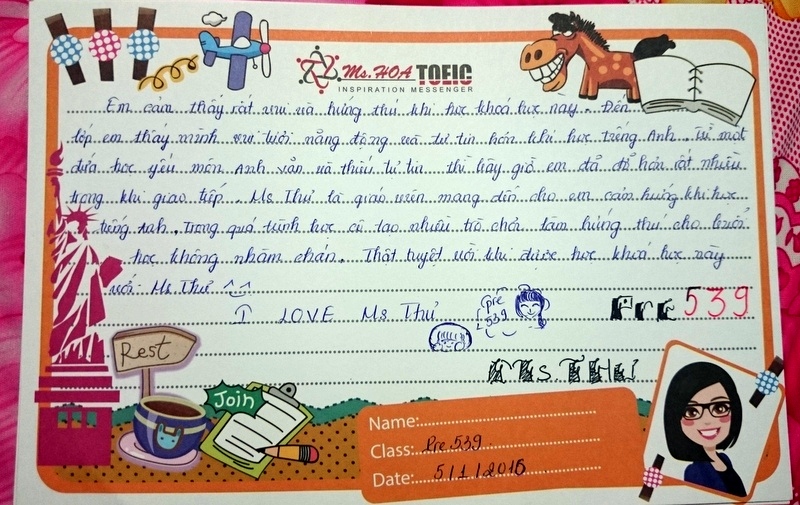 Ms. HOA TOEIC
INSPIRATION MESSENGER
Em cảm thấy rất vui và hứng thú khi học khoá học này. Đến
lớp em thấy mình vui tươi năng động và tự tin hơn khi học tiếng Anh. Từ một
đứa học yếu môn Anh văn và thiếu tự tin thì bây giờ em đã đỡ hơn rất nhiều
trong khi giao tiếp. Ms Thư là giáo viên mang đến cho em cảm hứng khi học
tiếng anh. Trong quá trình học cô tạo nhiều trò chơi làm hứng thú cho buổi
học không nhàm chán. Thật tuyệt vời khi được học khoá học này
với Ms Thư ^_^
I LOVE Ms. Thư
pre 539
Pre 539
Ms THƯ
Rest
Join
Name:
Class: Pre 539
Date: 5/1/2016